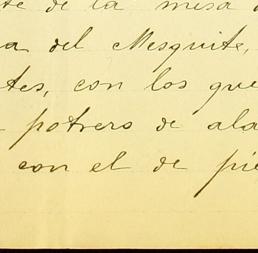 te de la mesa
a del Mesquite,
tes, con los que
potrero de ala
con el de pie